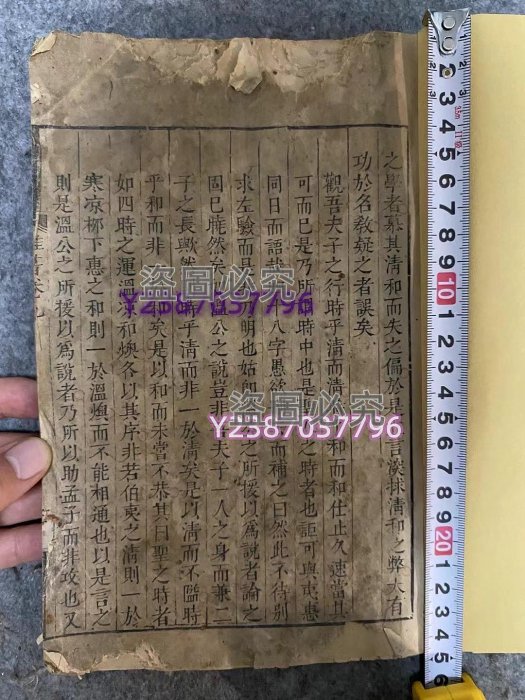 之學者慕其清和而失之偏於是 言深拔清和之弊大有
功於名教疑之者誤矣
觀吾夫子之行時乎清而清 和而和仕止久速當其
可而已是乃所 時中也是 之時者也詎可與夷惠
同日而語哉 八字愚欲 而補之曰然此不待別
求左驗而是 明也姑即 之所援以爲說者論之
固已曉然矣 公之說豈非 夫子一人之身而兼二
子之長歟然 時乎清而非一於清矣是以清而不隘時
乎和而非 和矣是以和而未嘗不恭其曰聖之時者
如四時之運溫 和燠各以其序非若伯夷之清則一於
寒凉柳下惠之和則一於溫燠而不能相通也以是言之
則是溫公之所援以爲說者乃所以助孟子而非攻也又
盜圖必究
Y2587657796
盜圖必究
Y2587657796
10
20